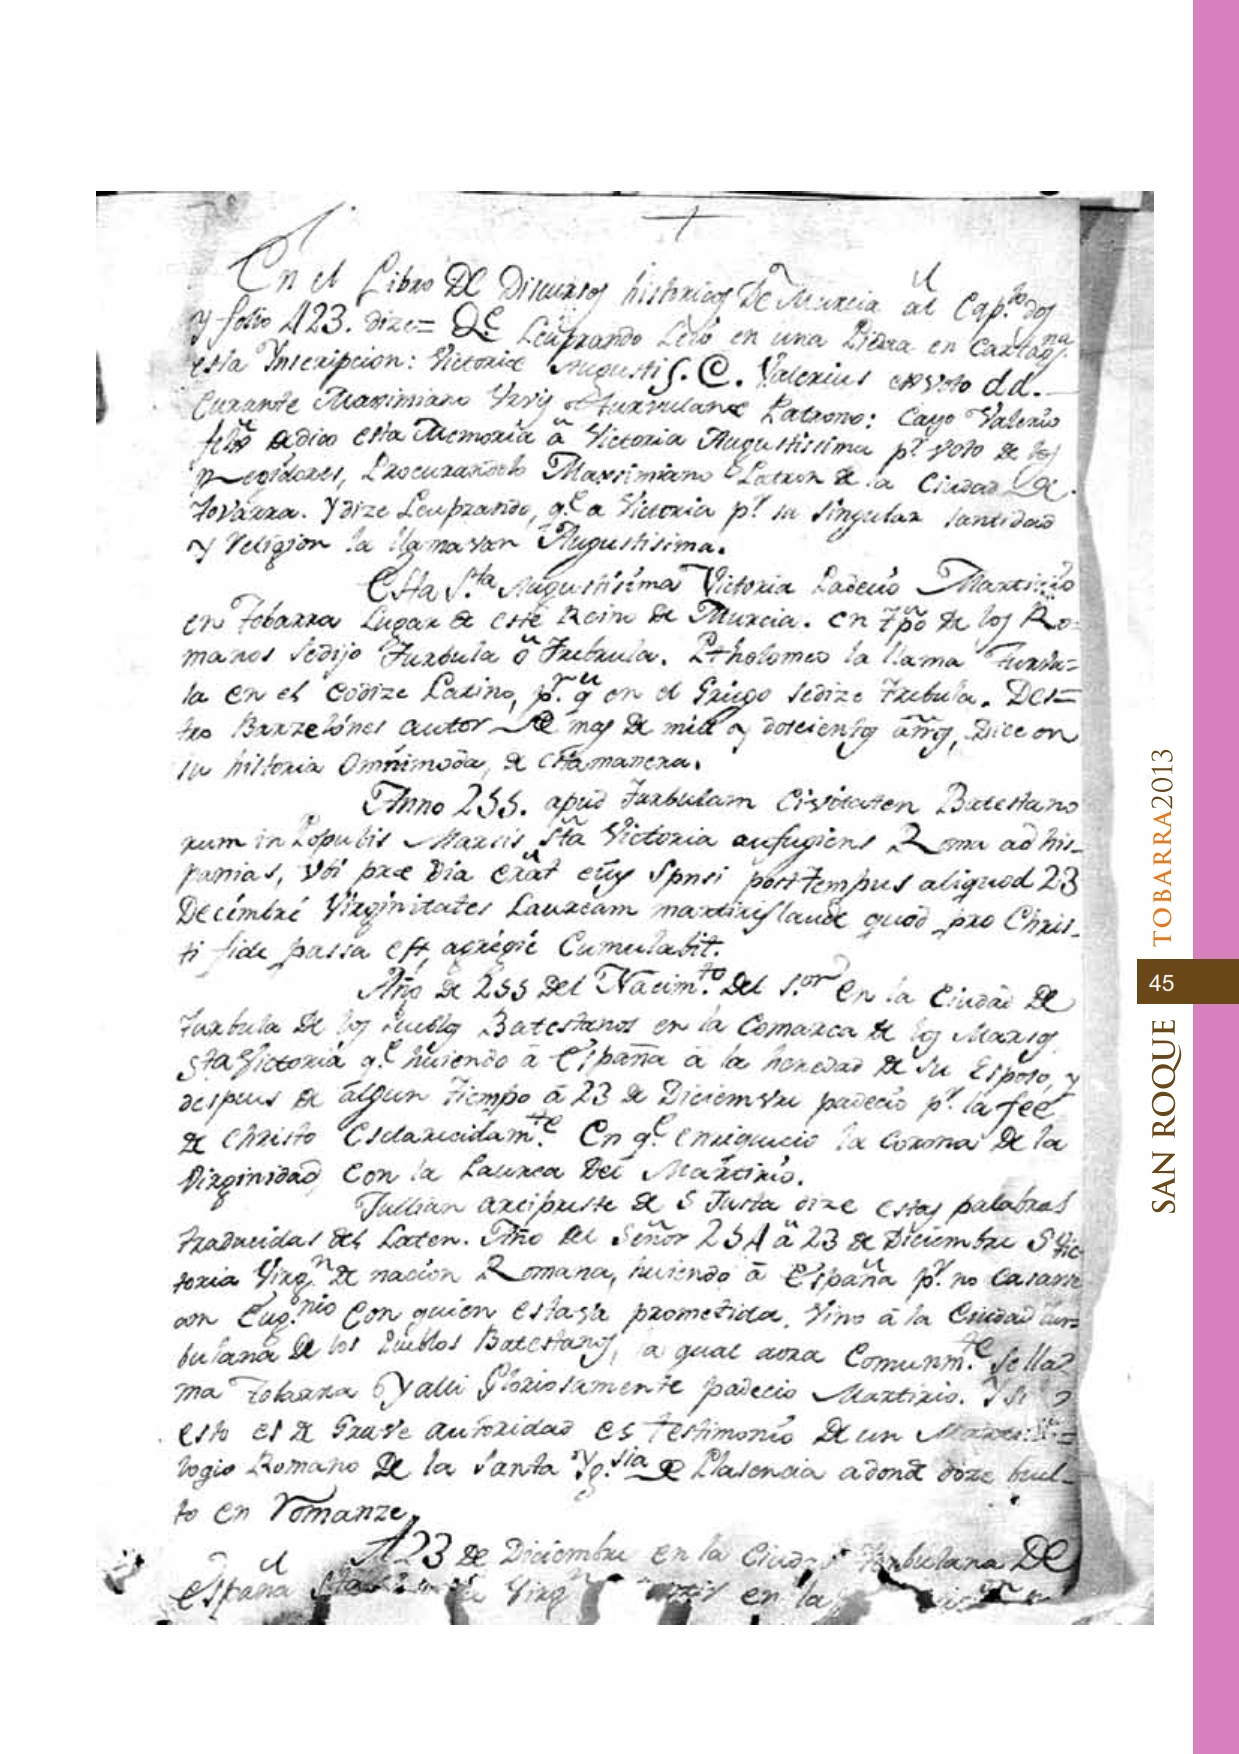 En el Libro De Discursos historicos De Murcia al Cap.to dos
y folio 423. dize= Q.e Leuprando Leio en una Piedra en Cartag.na
esta Inscripcion: Victoriæ Augusti S. C. Valerius exvoto d.d.
Curante Maximiano Turvulanæ Patrono: Cayo Valerio
dedico esta Memoria â Victoria Augustissima p.r voto de los
Regidores, Procurandolo Maximiano Patron de la Ciudad de
Tovarra. Y dize Leuprando, q.e a Victoria p.r su singular santidad
y Religion la llamavan Augustisima.
Esta S.ta Augustisima Victoria Padecio Martirio
en Tobarra Lugar de este Reino de Murcia. en tpõ de los Ro=
manos sedijo Turbula ô Trebrula. Ptholomeo la llama Turbu=
la en el codize Latino, p.r q en el Griego sedize Trebula. Des=
tro Barzelónes autor de mas de mill y doscientos años, Dice en
su historia Omnimoda, de esta manera.
Anno 255. apud Turbulam Civitaten Batestano
rum in Populis Marsis Sta Victoria aufugiens Roma ad his-
panias, vbi præ Dia erât eius Spnsi post tempus aliquod 23
Decembré Virginitates Lauream martiris laude quod pro Chris-
ti fide passa est, agregié Cumulabit.
Año de 255 del Nacim.to Del S.or en la Ciudad De
Turbula De los Pueblos Batestanos en la Comarca de los Marsos
Sta Victoria q.e huiendo â España â la heredad de su Esposo, y
despues de algun tiempo â 23 de Diciembre padecio p.r la fee
de Christo Esclarecidam.te En q.e enriquecio la Corona De la
Virginidad Con la Laurea Del Martirio.
Jullian arcipreste de S Justa dize estas palabras
traducidas del Laten. Año Del Señor 254 â 23 de Diciembre S Vic
toria Virg.n de nacion Romana, huiendo â España p.r no Casarse
con Eug.nio Con quien estava prometida. Vino â la Ciudad tur=
bulana de los Pueblos Batestanos, la qual aora Comunm.te se lla=
ma Tobarra Y alli Gloriosamente padecio Martirio. Y si
esto es de Grave autoridad es testimonio De un
logio Romano De la Santa Yg.sia de Plasencia adonde dize buel-
to en Romanze,
A 23 De Diciembre en la Ciudad Turbulana De
España Virg en la
TOBARRA2013
45
SAN ROQUE